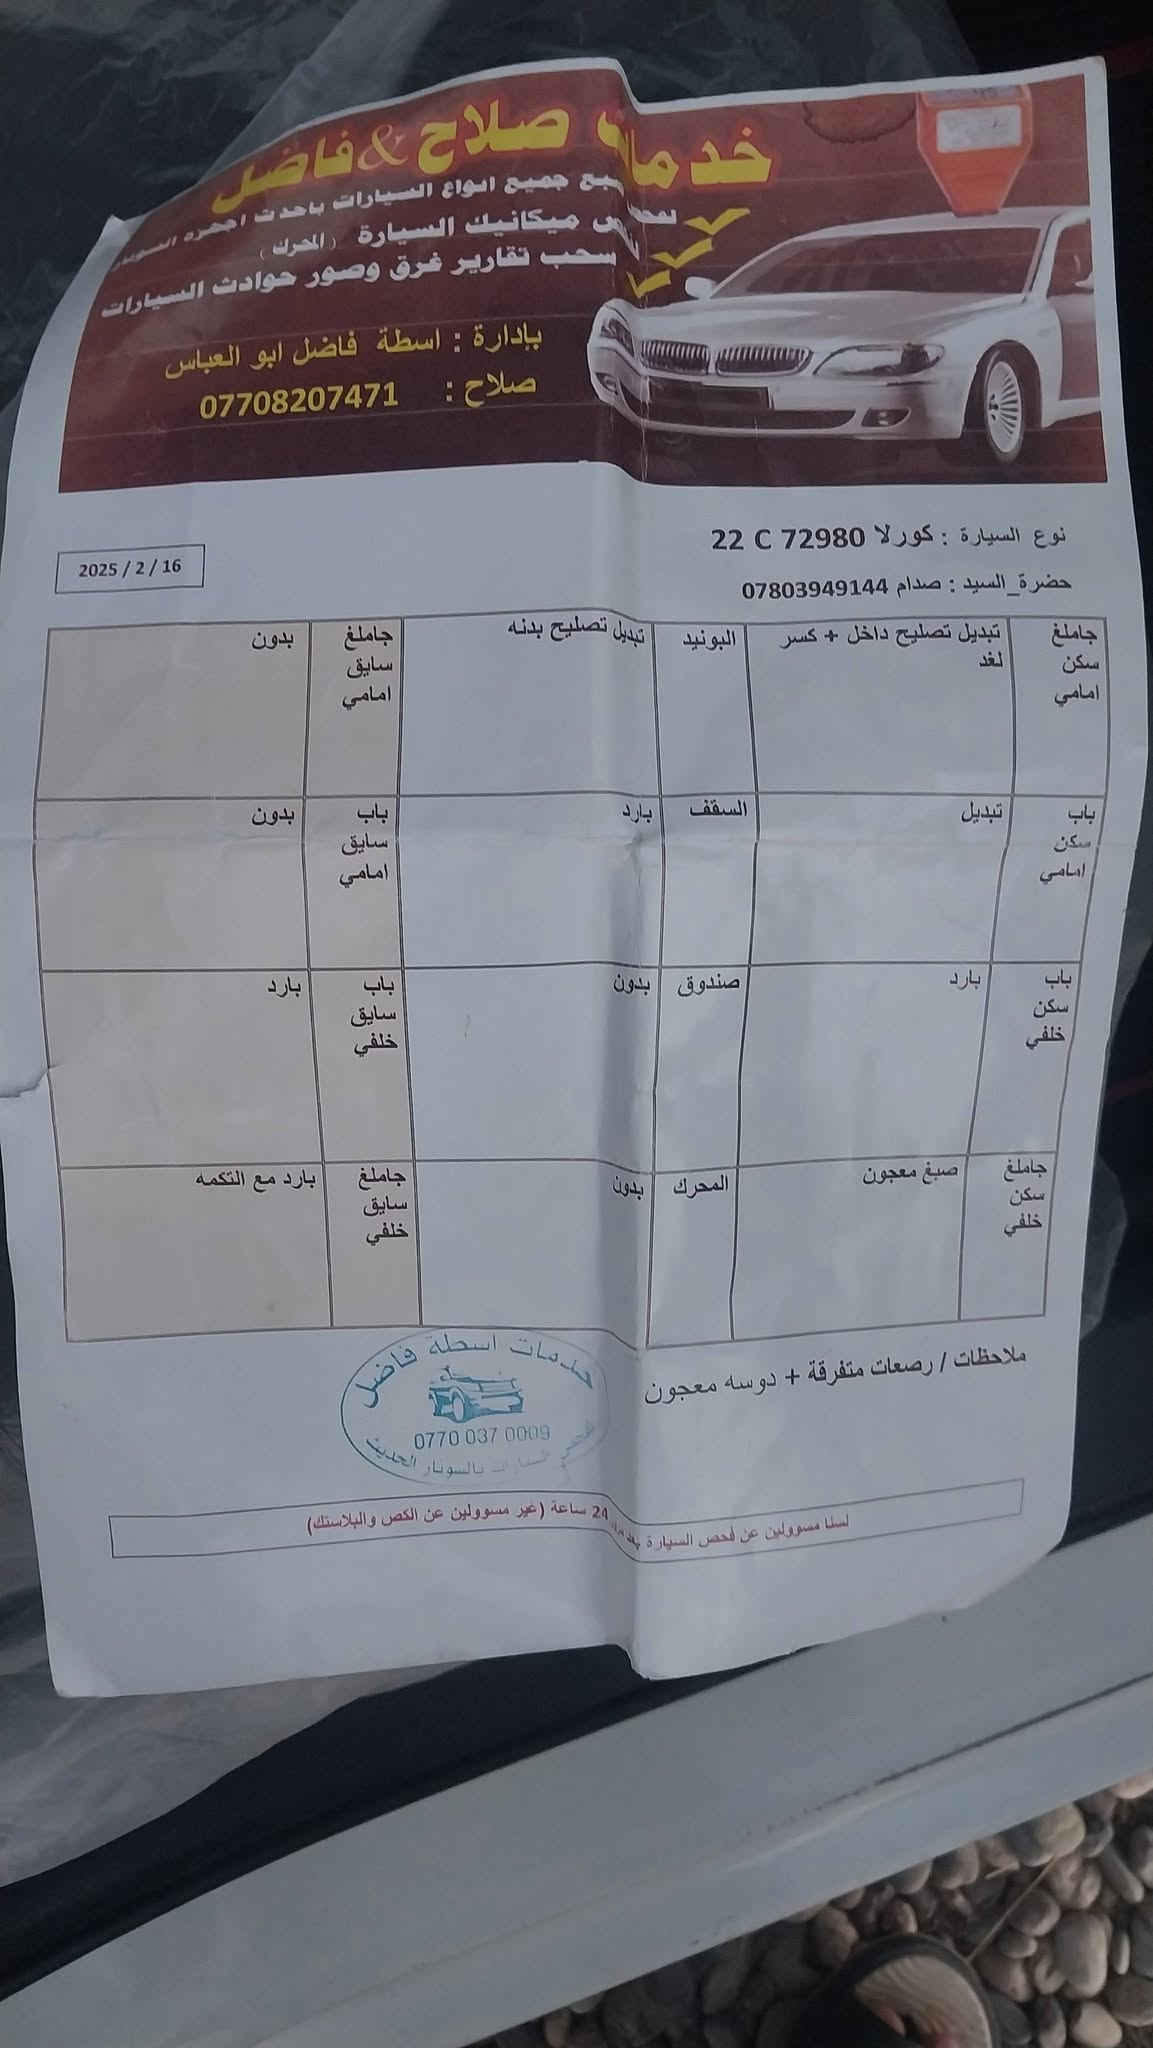 خدمات صلاح & فاضل
جميع انواع السيارات باحدث اجهزه
ميكانيك السيارة ( المحرك )
سحب تقارير غرق وصور حوادث السيارات
بإدارة : اسطة فاضل ابو العباس
صلاح : 07708207471
نوع السيارة : كورلا 22 C 72980
2025 / 2 / 16
حضرة_السيد : صدام 07803949144
جاملغ سكن امامي
تبديل تصليح داخل + كسر لغد
البونيد
تبديل تصليح بدنه
جاملغ سايق امامي
بدون
باب سكن امامي
تبديل
السقف
بارد
باب سايق امامي
بدون
باب سكن خلفي
بارد
صندوق
بدون
باب سايق خلفي
بارد
جاملغ سكن خلفي
صبغ معجون
المحرك
بدون
جاملغ سايق خلفي
بارد مع التكمه
ملاحظات / رصعات متفرقة + دوسه معجون
خدمات اسطة فاضل
0770 037 0009
السيارات بالسونار الحديث
لسنا مسوولين عن فحص السيارة بعد 24 ساعة (غير مسوولين عن الكص والبلاستك)